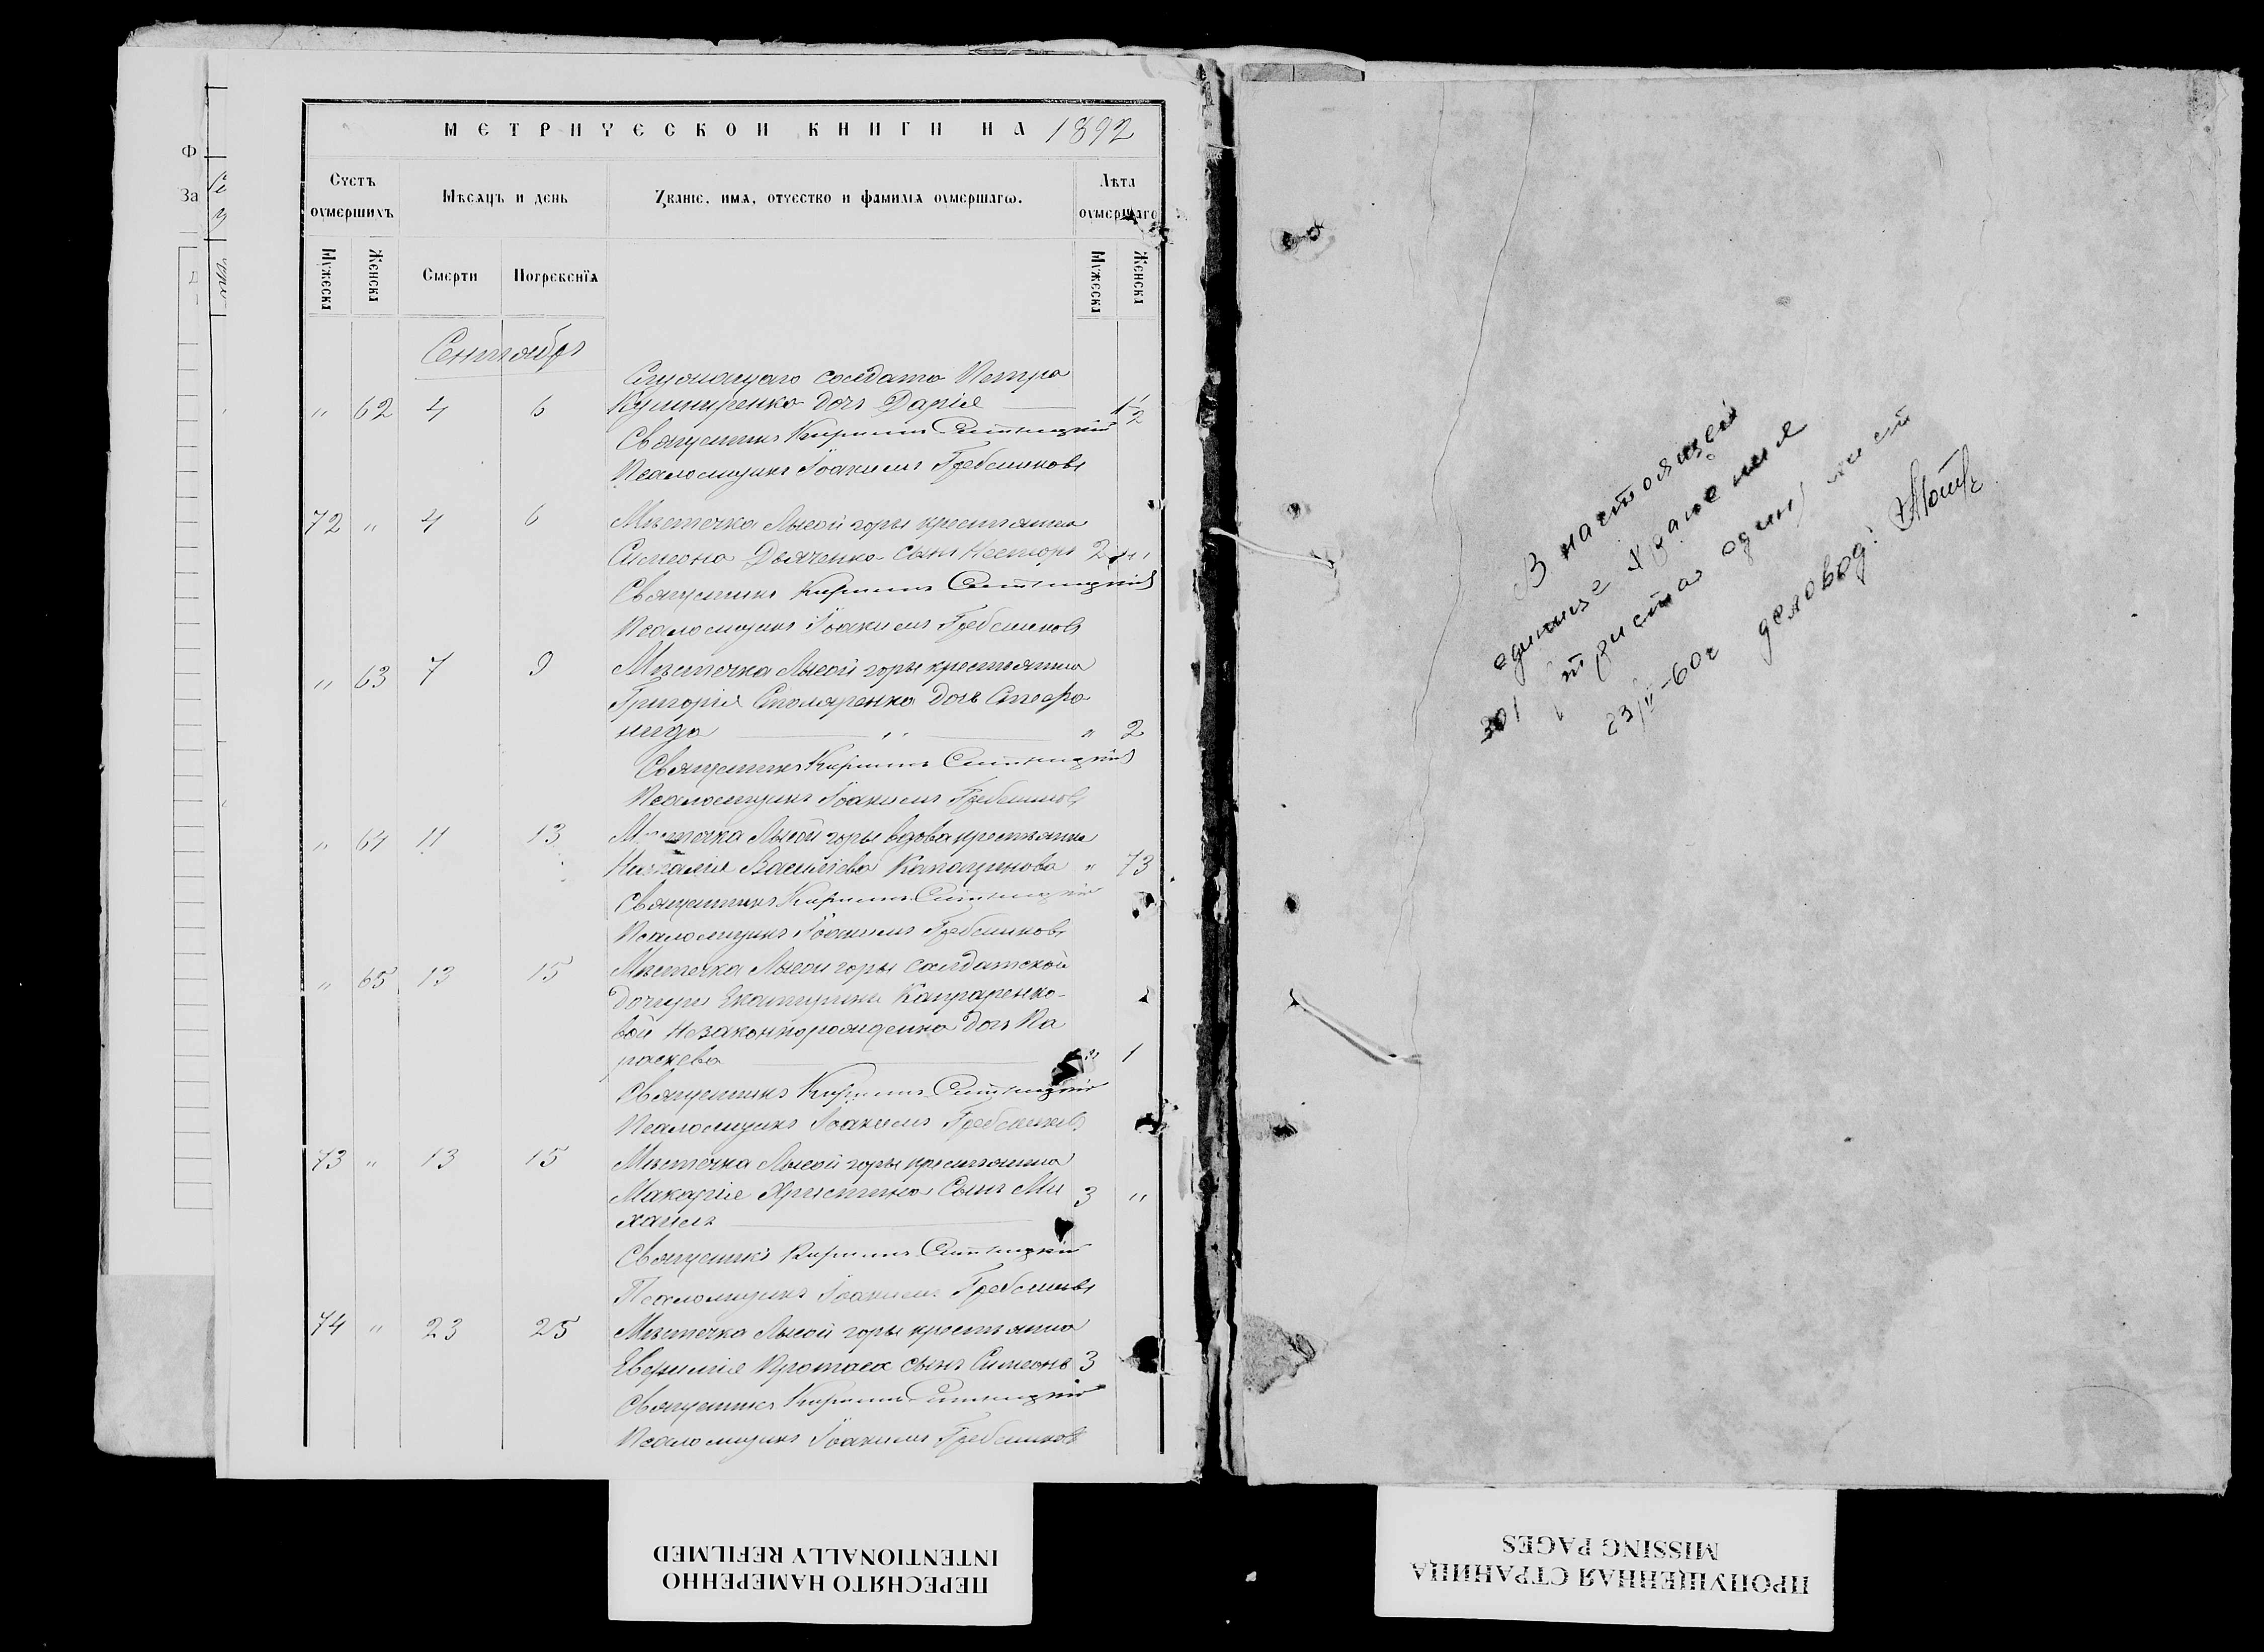 МЕТРИЧЕСКОЙ КНИГИ НА 1892
Счетъ оумершихъ
Мѣсяцъ и день
Званіе, имя, отчество и фамилія оумершагѡ.
Лѣта оумершаго
Мужеска
Женска
Смерти
Погребенїя
Мужеска
Женска
Сентябрь
Служащаго солдата Петра
" 62 4 6 Кушниренко дочь Дарія 1/2
Священникъ Кириллъ
Псаломщикъ Іоакимъ Гребенниковъ
72 " 4 6 Мѣстечка Лысой горы крестьянина
Симеона Дьяченко сынъ Несторъ 2
Священникъ Кириллъ
Псаломщикъ Іоакимъ Гребенниковъ
" 63 7 9 Мѣстечка Лысой горы крестьянина
Григорія Столяренко дочь Стефа
нида " " 2
Священникъ Кириллъ
Псаломщикъ Іоакимъ Гребенниковъ
" 64 11 13 Мѣстечка Лысой горы вдова крестьянка
Наталія Васильева " 73
Священникъ Кириллъ
Псаломщикъ Іоакимъ Гребенниковъ
" 65 13 15 Мѣстечка Лысой горы солдатской
дочери Екатерины Капраренко-
вой незаконнорожденна дочь Па
раскева " 1
Священникъ Кириллъ
Псаломщикъ Іоакимъ Гребенниковъ
73 " 13 15 Мѣстечка Лысой горы крестьянина
Макарія сынъ Ми 3 "
хаилъ
Священникъ Кириллъ
Псаломщикъ Іоакимъ Гребенниковъ
74 " 23 25 Мѣстечка Лысой горы крестьянина
Евфимія Протаса сынъ Симеонъ 3
Священникъ Кириллъ
Псаломщикъ Іоакимъ Гребенниковъ
В настоящей
единице хранения
301 (триста один) лист
23/II-60г деловод:
ПЕРЕСНЯТО НАМЕРЕННО
INTENTIONALLY REFILMED
ПРОПУЩЕННАЯ СТРАНИЦА
MISSING PAGES